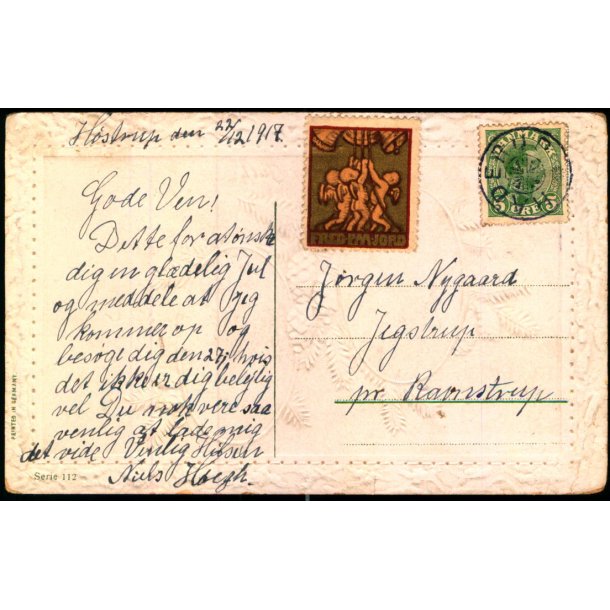 Høstrup den 22/12 1917.
Gode Ven!
Dette for at ønske
dig en glædelig Jul
og meddele at jeg
kommer op og
besøge dig den 27, hvis
det ikke er dig belejlig
vel Du nok være saa
venlig at lade mig
det vide Venlig Hilsen
Niels Høegh.
FRED PAA JORD
DANMARK
5 ØRE 5
Jørgen Nygaard
Jegstrup
pr Ravnstrup
PRINTED IN GERMANY.
Serie 112